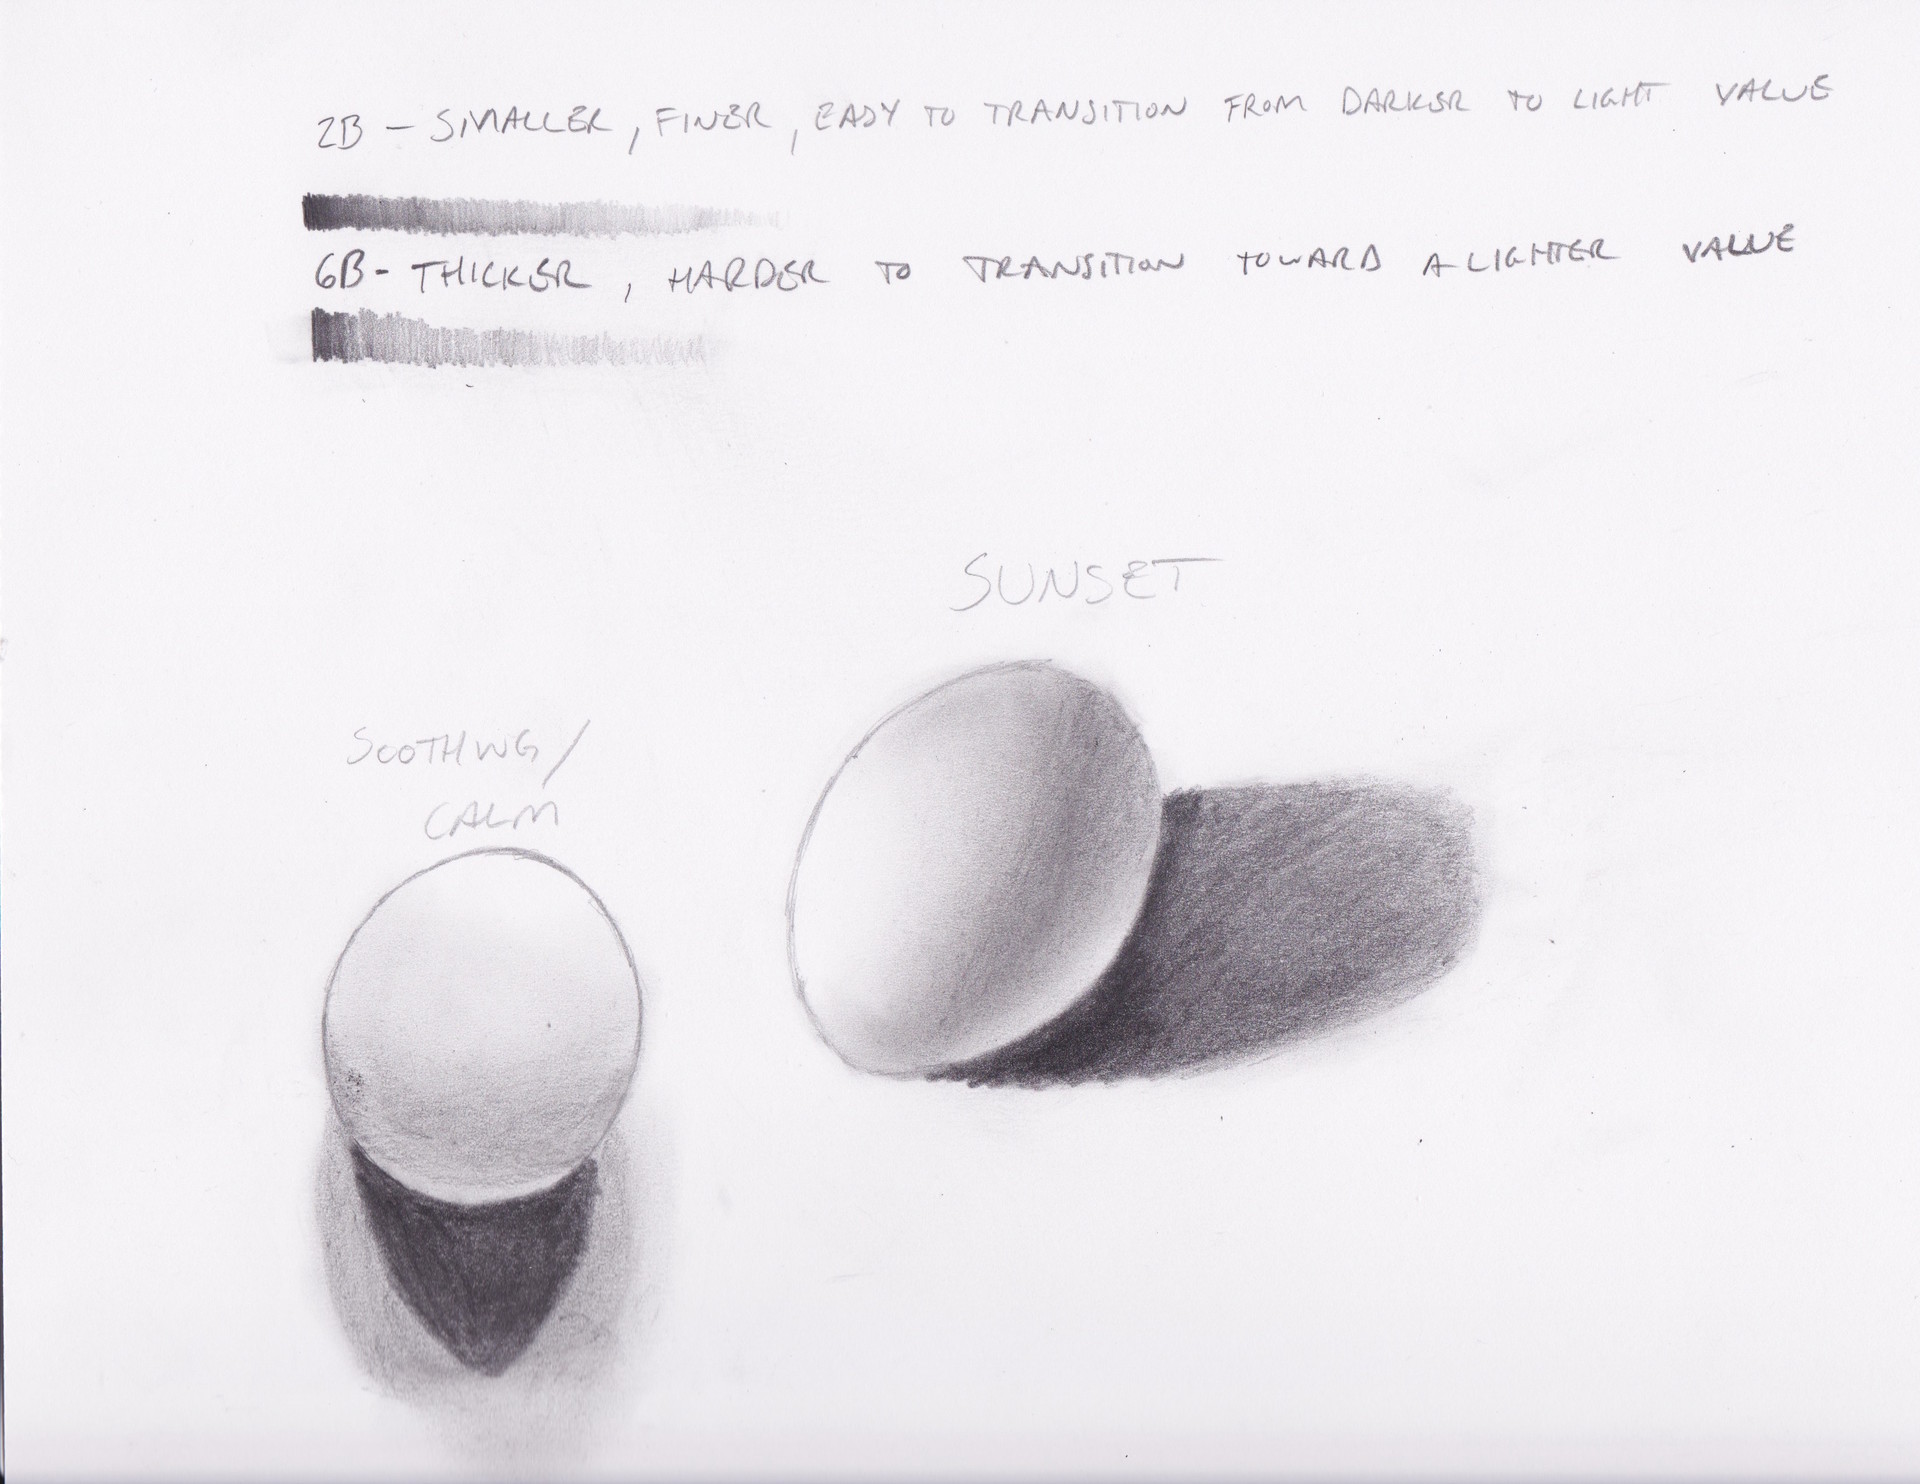 2B - SMALLER, FINER, EASY TO TRANSITION FROM DARKER TO LIGHT VALUE
6B - THICKER, HARDER TO TRANSITION TOWARD A LIGHTER VALUE
SUNSET
SOOTHING/
CALM